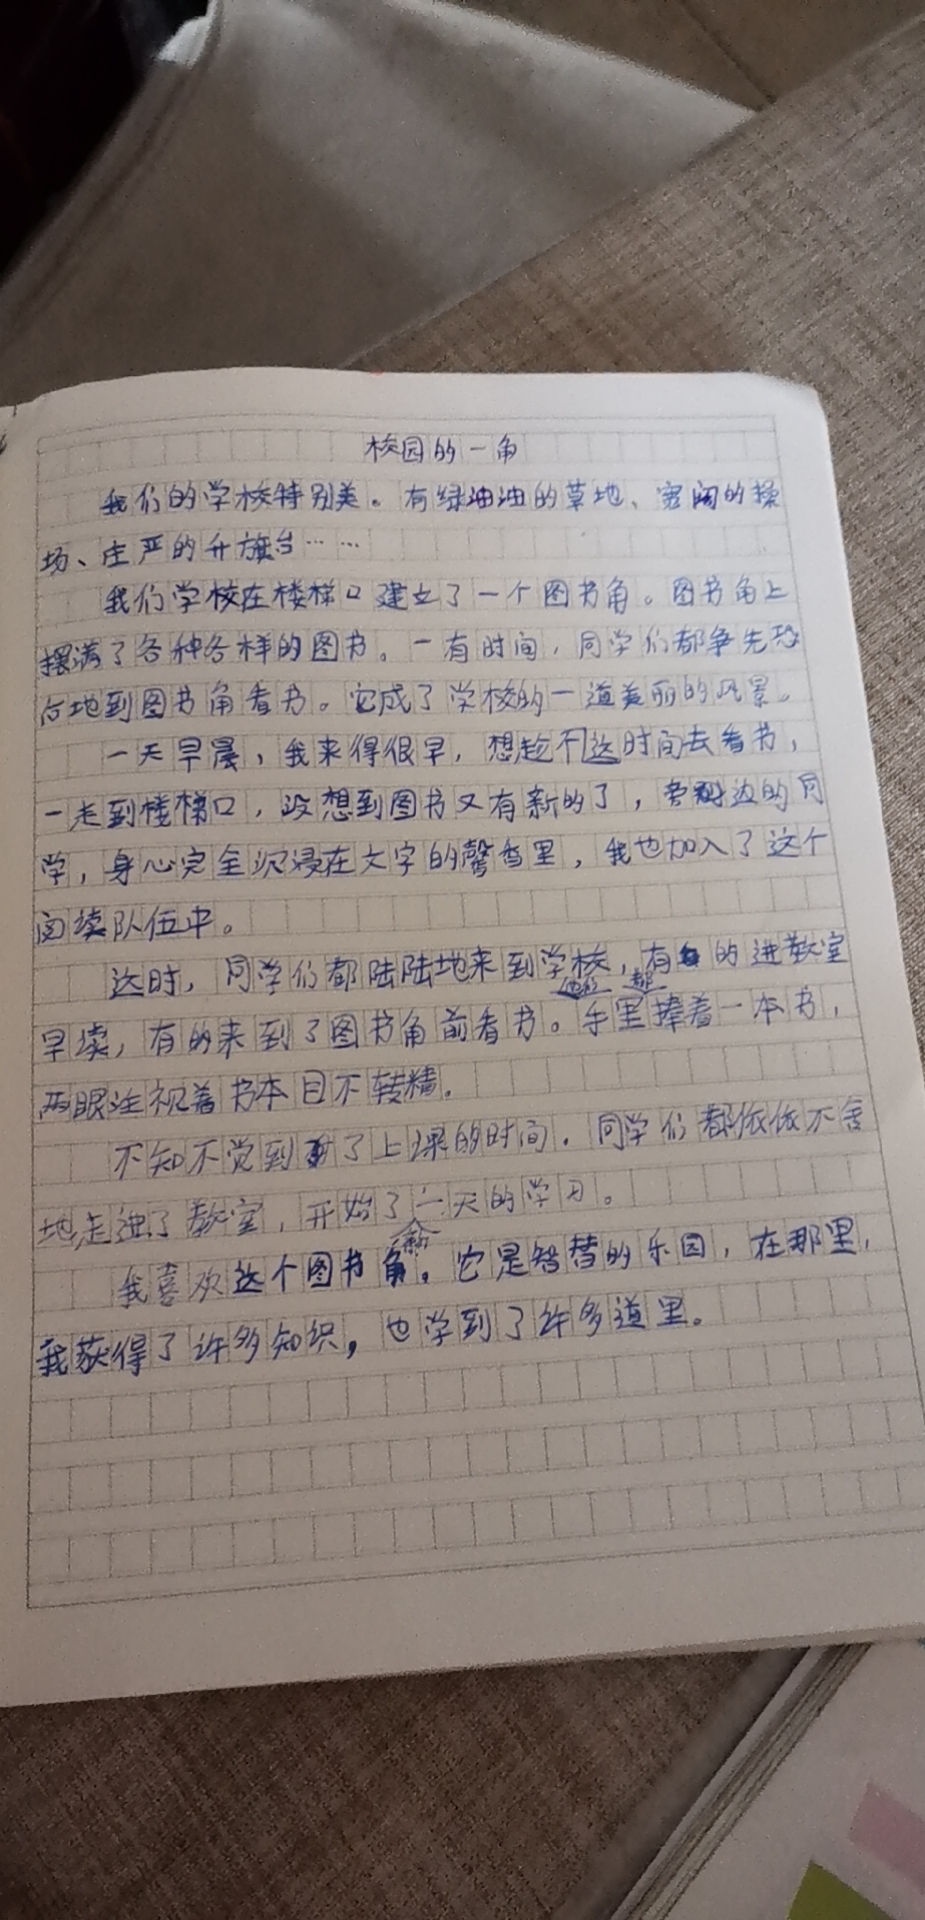 校园的一角
我们的学校特别美。有绿油油的草地、宽阔的操
场、庄严的升旗台……
我们学校在楼梯口建立了一个图书角。图书角上
摆满了各种各样的图书。一有时间，同学们都争先恐
后地到图书角看书。它成了学校的一道美丽的风景。
一天早晨，我来得很早，想趁不这时间去看书，
一走到楼梯口，没想到图书又有新的了，旁边的同
学，身心完全沉浸在文字的馨香里，我也加入了这个
阅读队伍中。
这时，同学们都陆陆地来到学校，有的进教室
早读，有的来到了图书角前看书。他们手里都捧着一本书，
两眼注视着书本目不转精。
不知不觉到了上课的时间。同学们都依依不舍
地走进了教室，开始了新一天的学习。
我喜欢这个图书角，它是智替的乐园，在那里，
我获得了许多知识，也学到了许多道里。